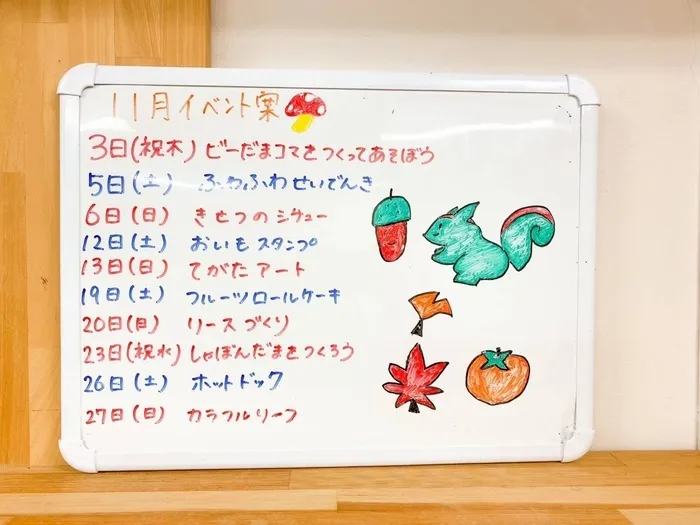 11月イベント案
3日(祝木) ビーだまコマをつくってあそぼう
5日(土) ふわふわせいでんき
6日(日) きせつのシチュー
12日(土) おいもスタンプ
13日(日) てがたアート
19日(土) フルーツロールケーキ
20日(日) リースづくり
23日(祝水) しゃぼんだまをつくろう
26日(土) ホットドック
27日(日) カラフルリーフ